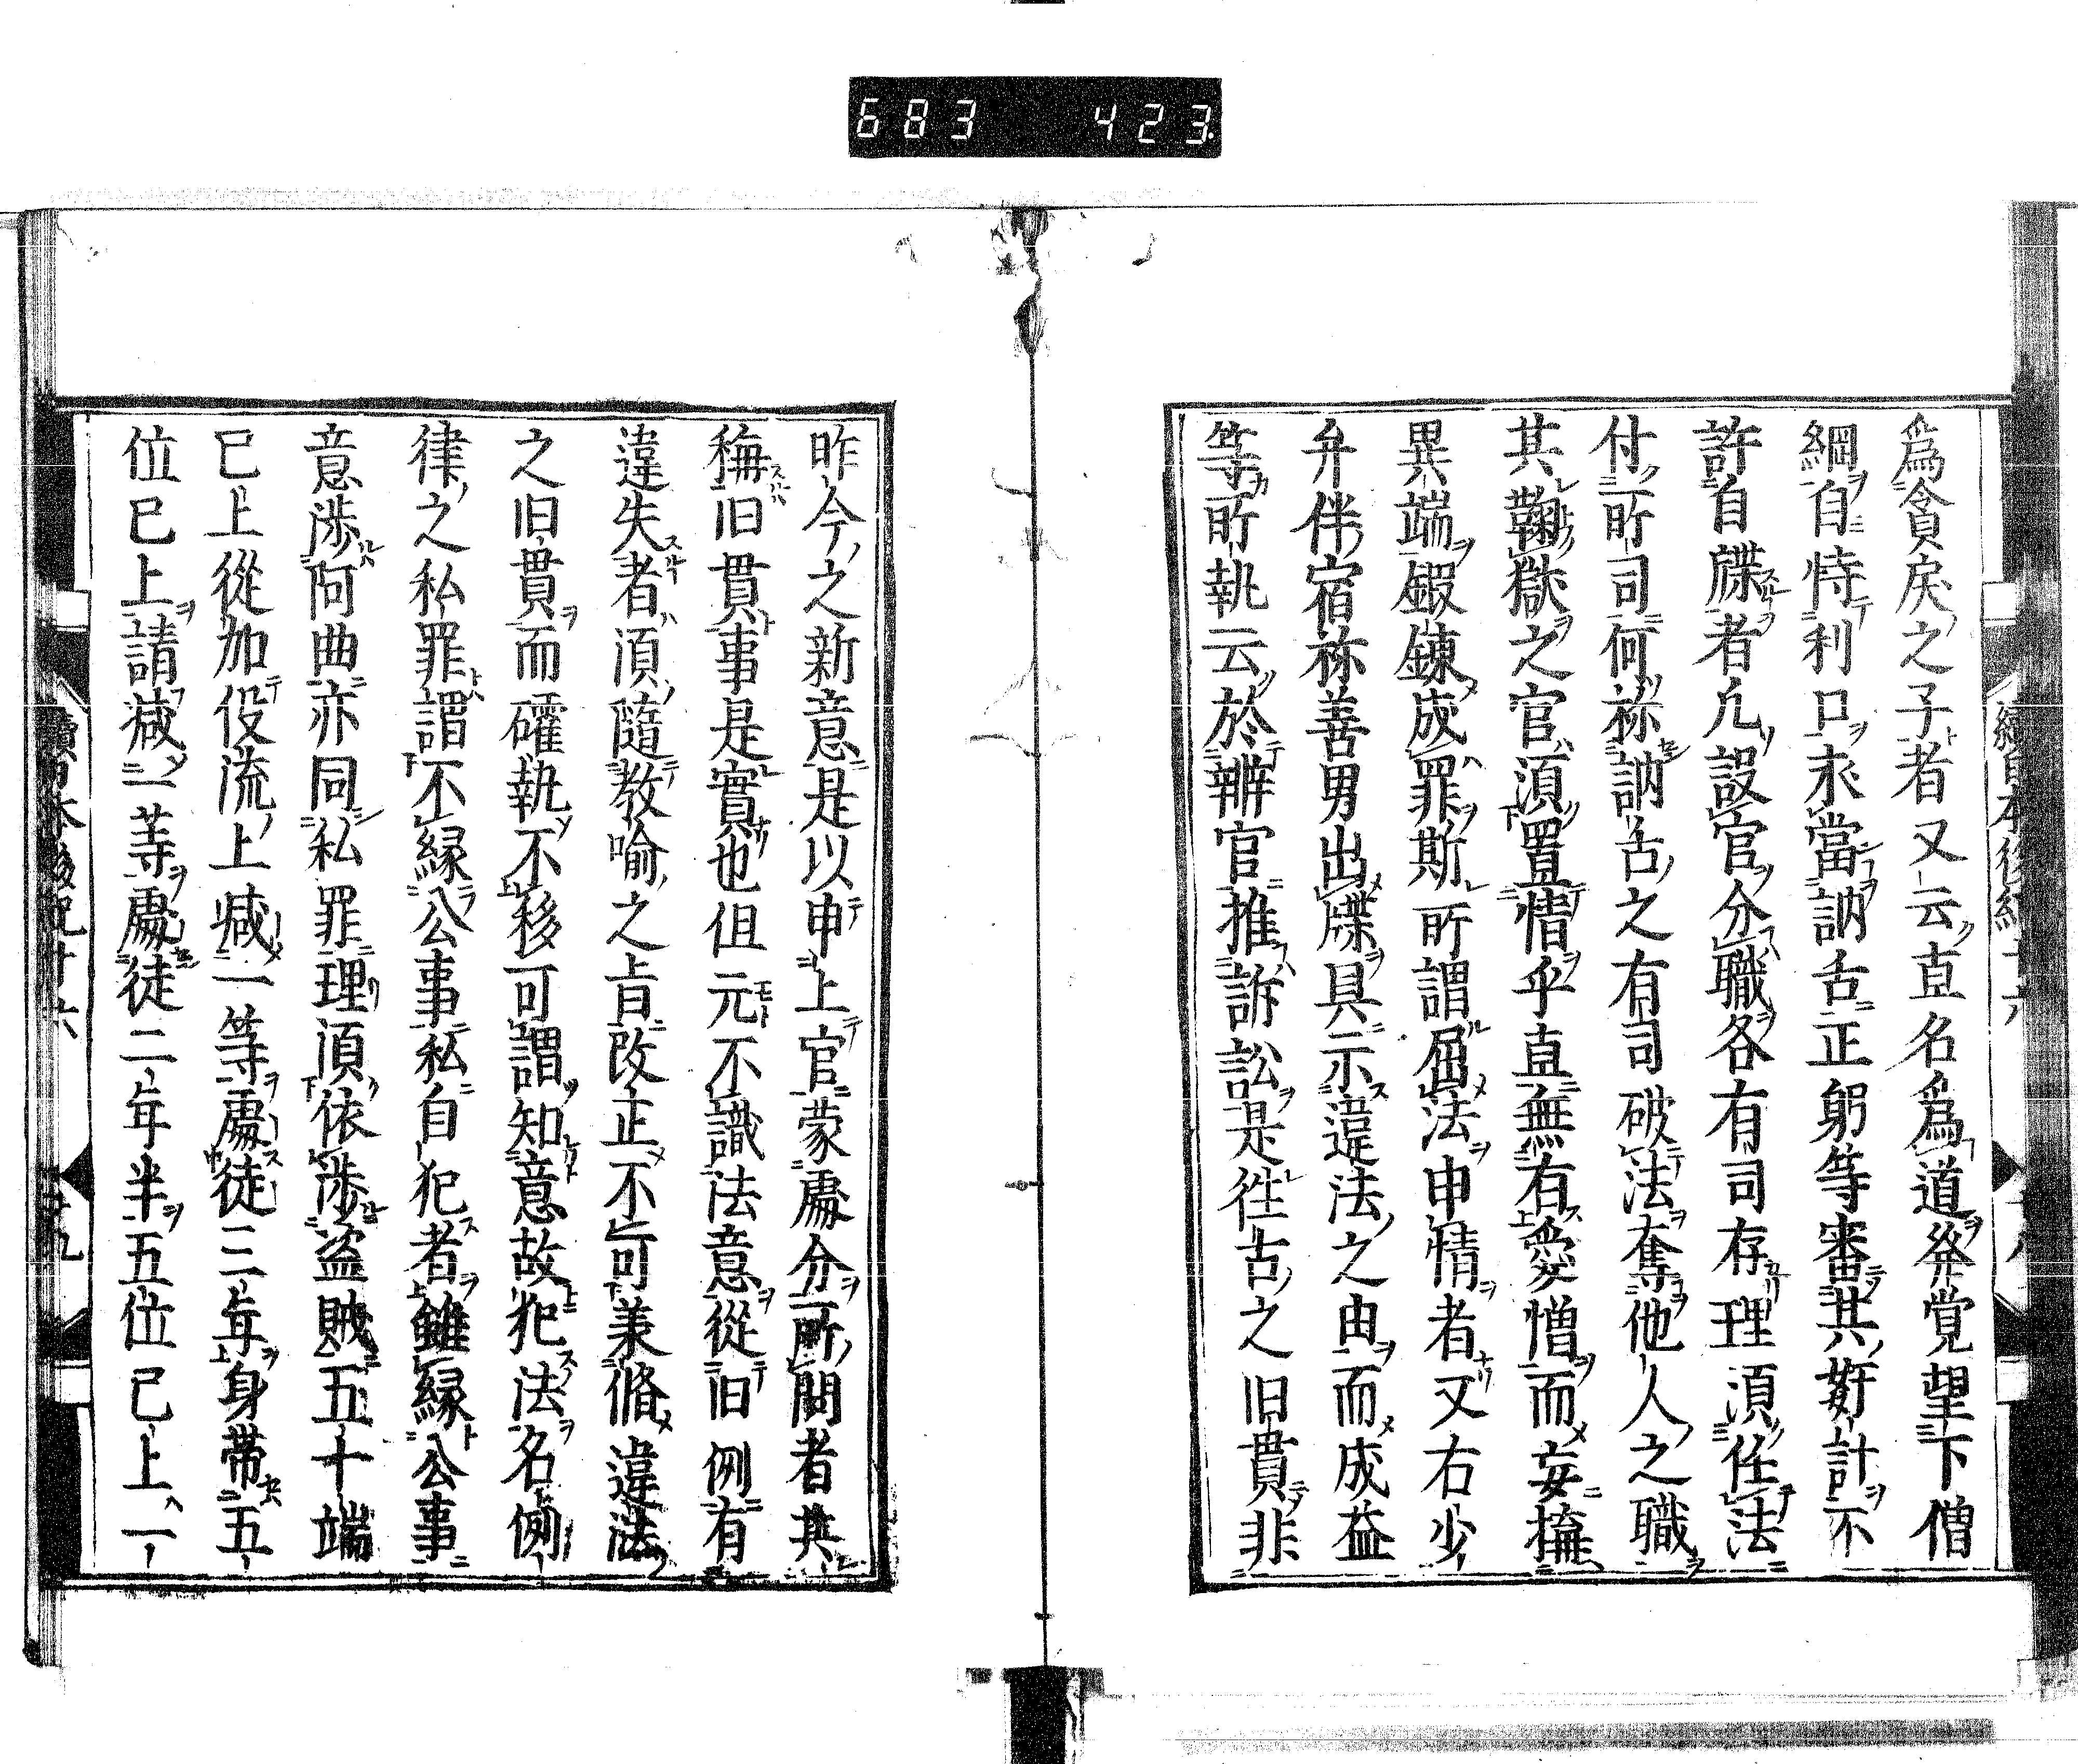 683 423
爲貪戻之子者又云直名爲道發覚望下僧
綱自恃利口求當訥舌正躬等審共姧計不
許自牒者凢設官分職各有司存理須任法
付所司何祢訥舌之有司破法奪他人之職
其鞠獄之官須置情乎直無有愛憎而妄擁
異端鍜錬成罪斯所謂屈法申情者又右少
弁伴宿祢善男出牒具示違法之由而成益
等所執云於辨官推訴訟是徃古之旧貫非
昨今之新意是以申上官蒙處分所問者其
稱旧貫事是實也但元不識法意從旧例有
違失者須隨教喩之旨改正不可兼脩違法
之旧貫而確執不移可謂知意故犯法名例
律之私罪謂不縁公事私自犯者雖縁公事
意渉阿曲亦同私罪理須依渉盗賊五十端
已上從加役流上减一等處徒三年身帯五
位已上請减一等處徒二年半五位已上一
續日本後紀十六